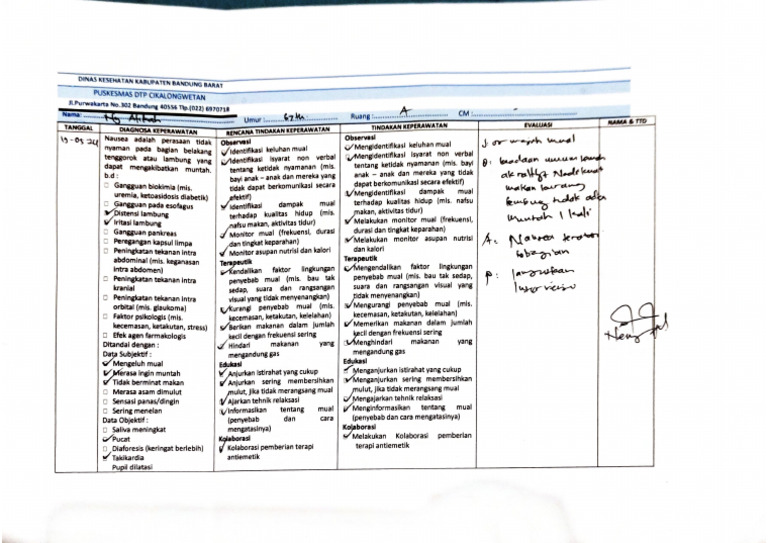 DINAS KESEHATAN KABUPATEN BANDUNG BARAT
PUSKESMAS DTP CIKALONGWETAN
Jl.Purwakarta No.302 Bandung 40556 Tlp.(022) 6970718
Nama: Ny Umur : 67th Ruang : A CM : -
TANGGAL
DIAGNOSA KEPERAWATAN
RENCANA TINDAKAN KEPERAWATAN
TINDAKAN KEPERAWATAN
EVALUASI
NAMA & TTD
Nausea adalah perasaan tidak
nyaman pada bagian belakang
tenggorok atau lambung yang
dapat mengakibatkan muntah.
b.d :
Gangguan biokimia (mis.
uremia, ketoasidosis diabetik)
Gangguan pada esofagus
Distensi lambung
Iritasi lambung
Gangguan pankreas
Peregangan kapsul limpa
Peningkatan tekanan intra
abdominal (mis. keganasan
intra abdomen)
Peningkatan tekanan intra
kranial
Peningkatan tekanan intra
orbital (mis. glaukoma)
Faktor psikologis (mis.
kecemasan, ketakutan, stress)
Efek agen farmakologis
Ditandai dengan :
Data Subjektif :
Mengeluh mual
Merasa ingin muntah
Tidak berminat makan
Merasa asam dimulut
Sensasi panas/dingin
Sering menelan
Data Objektif :
Saliva meningkat
Pucat
Diaforesis (keringat berlebih)
Takikardia
Pupil dilatasi
Observasi
Identifikasi keluhan mual
Identifikasi isyarat non verbal
tentang ketidak nyamanan (mis.
bayi anak – anak dan mereka yang
tidak dapat berkomunikasi secara
efektif)
Identifikasi dampak mual
terhadap kualitas hidup (mis.
nafsu makan, aktivitas tidur)
Monitor mual (frekuensi, durasi
dan tingkat keparahan)
Monitor asupan nutrisi dan kalori
Terapeutik
Kendalikan faktor lingkungan
penyebab mual (mis. bau tak
sedap, suara dan rangsangan
visual yang tidak menyenangkan)
Kurangi penyebab mual (mis.
kecemasan, ketakutan, kelelahan)
Berikan makanan dalam jumlah
kecil dengan frekuensi sering
Hindari makanan yang
mengandung gas
Edukasi
Anjurkan istirahat yang cukup
Anjurkan sering membersihkan
mulut, jika tidak merangsang mual
Ajarkan tehnik relaksasi
Informasikan tentang mual
(penyebab dan cara
mengatasinya)
Kolaborasi
Kolaborasi pemberian terapi
antiemetik
Observasi
Mengidentifikasi keluhan mual
Mengidentifikasi isyarat non verbal
tentang ketidak nyamanan (mis. bayi
anak – anak dan mereka yang tidak
dapat berkomunikasi secara efektif)
Mengidentifikasi dampak mual
terhadap kualitas hidup (mis. nafsu
makan, aktivitas tidur)
Melakukan monitor mual (frekuensi,
durasi dan tingkat keparahan)
Melakukan monitor asupan nutrisi
dan kalori
Terapeutik
Mengendalikan faktor lingkungan
penyebab mual (mis. bau tak sedap,
suara dan rangsangan visual yang
tidak menyenangkan)
Mengurangi penyebab mual (mis.
kecemasan, ketakutan, kelelahan)
Memerikan makanan dalam jumlah
kecil dengan frekuensi sering
Menghindari makanan yang
mengandung gas
Edukasi
Menganjurkan istirahat yang cukup
Menganjurkan sering membersihkan
mulut, jika tidak merangsang mual
Mengajarkan tehnik relaksasi
Menginformasikan tentang mual
(penyebab dan cara mengatasinya)
Kolaborasi
Melakukan Kolaborasi pemberian
terapi antiemetik
S: os masih mual
O: keadaan umum lemah
makan kurang
kembung tidak ada
muntah 1 kali
A: Nausea teratasi
sebagian
P: lanjutkan
intervensi